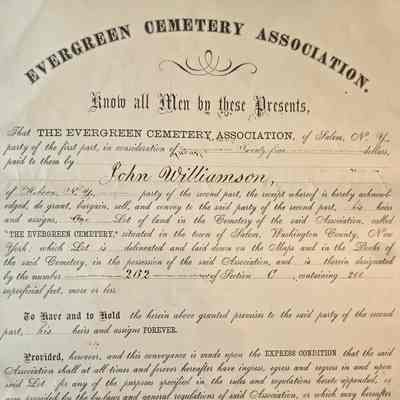 EVERGREEN CEMETERY ASSOCIATION.
Know all Men by these Presents,
That THE EVERGREEN CEMETERY ASSOCIATION, of Salem, N. Y.,
party of the first part, in consideration of Twenty five dollars,
paid to them by
John Williamson,
of Hebron, N. Y. party of the second part, the receipt whereof is hereby acknowl-
edged, do grant, bargain, sell, and convey to the said party of the second part, his heirs
and assigns, One Lot of land in the Cemetery of the said Association, called
"THE EVERGREEN CEMETERY," situated in the town of Salem, Washington County, New
York, which Lot is delineated and laid down on the Maps and in the Books of
the said Cemetery, in the possession of the said Association, and is therein designated
by the number 262 of Section C containing 200
superficial feet, more or less.
To Have and to Hold the herein above granted premises to the said party of the second
part, his heirs and assigns FOREVER.
Provided, however, and this conveyance is made upon the EXPRESS CONDITION that the said
Association shall at all times and forever hereafter have ingress, egress and regress in and upon
said Lot for any of the purposes specified in the rules and regulations hereto appended, or
now provided by the bylaws and general regulations of said Association, or which may hereafter